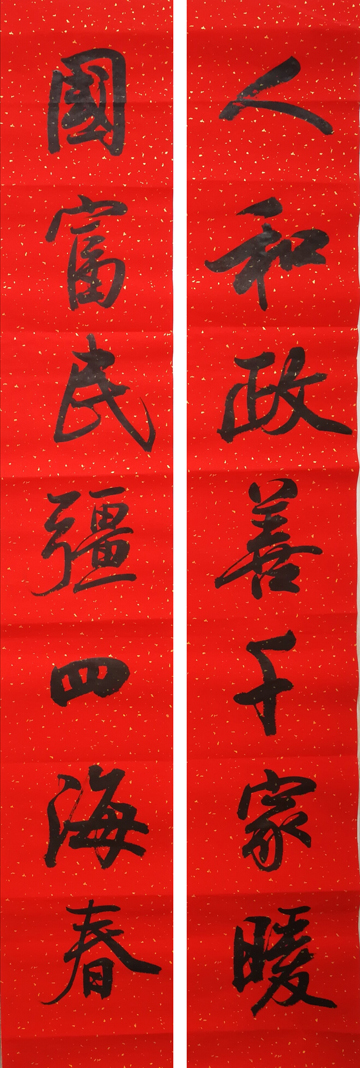 人和政善千家暖
國富民彊四海春